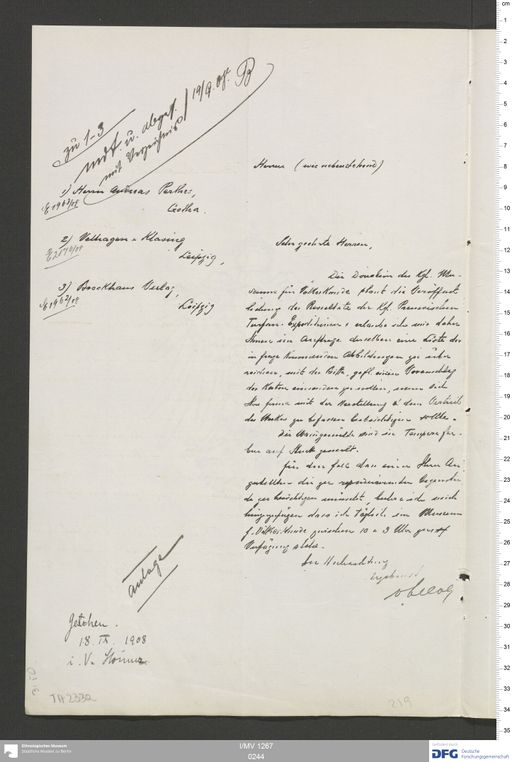 zu 1-3
mdt. u. abges.
mit Verzeichnis
19/9. 08.
Herren (wie nebenstehend)
1) Herrn Andreas Perthes,
Gotha.
2) Velhagen & Klasing
Leipzig,
3) Brockhaus Verlag,
Leipzig
Sehr geehrte Herren,
Die Direktion des Kgl. Mu-
seums für Völkerkunde plant die Veröffent-
lichung der Resultate der Kgl. Preussischen
Turfan-Expeditionen & erlaube ich mir daher
Ihnen im Auftrage derselben eine Liste der
in Frage kommenden Abbildungen zu über-
reichen, mit der Bitte, gefl. einen Voranschlag
der Kosten einsenden zu wollen, wenn sich
Ihre Firma mit der Herstellung & dem Vertrieb
des Werkes zu befassen beabsichtigen sollte.
Die Wandgemälde sind in Temperafar-
ben auf Stuck gemalt.
Für den Fall dass einer Ihrer An-
gestellten die zu reproduzierenden Gegenstän-
de zu besichtigen wünscht, beehre ich mich
hinzuzufügen dass ich täglich im Museum
f. Völkerkunde zwischen 10 & 3 Uhr zur
Verfügung stehe.
Hochachtung
ergebenst
v. Lecoq
Anlage
Gesehen.
18. IX. 1908
i. V.
TA 2332
219
Ethnologisches Museum
Staatliche Museen zu Berlin
I/MV 1267
0244
Gefördert durch
DFG
Deutsche
Forschungsgemeinschaft